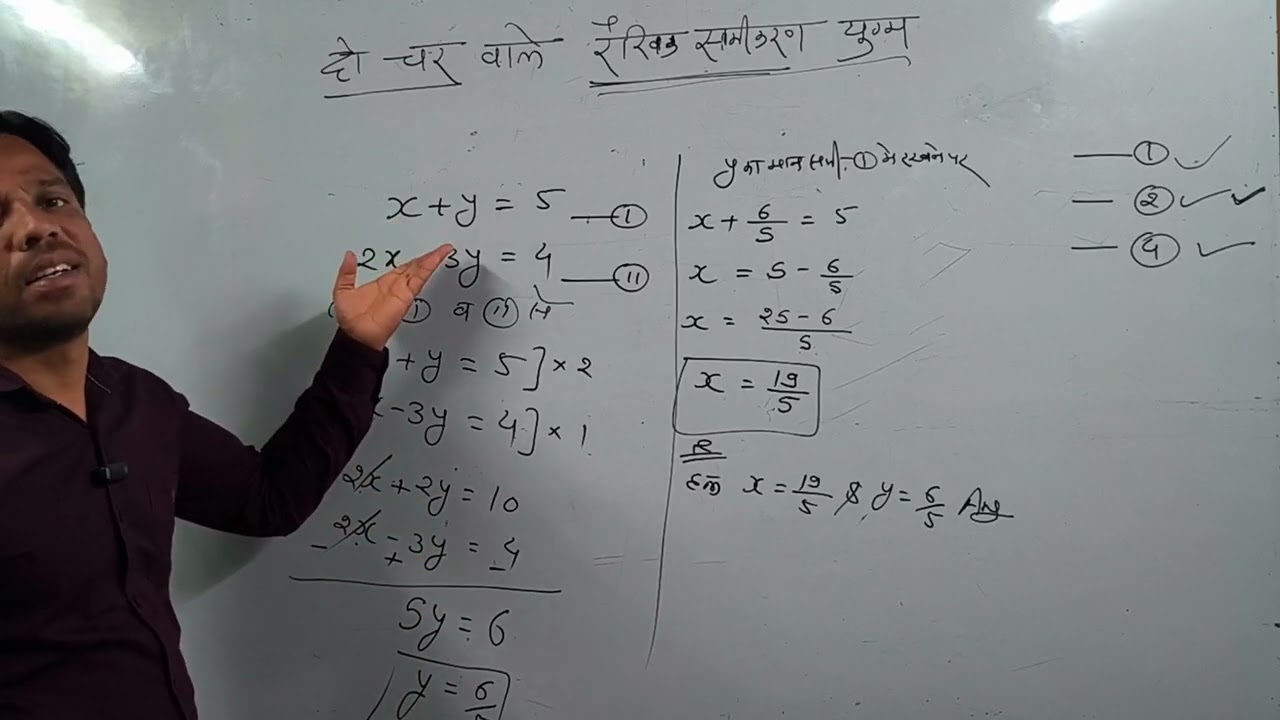 दो चर वाले रैखिक समीकरण युग्म
x + y = 5 —①
2x 3y = 4 —⑪
① व ⑪ से
+ y = 5] × 2
x - 3y = 4] × 1
2x + 2y = 10
2x - 3y = 4
- + -
5y = 6
y = 6/5
y का मान समी. ① मे रखने पर
x + 6/5 = 5
x = 5 - 6/5
x = 25 - 6/5
x = 19/5
हल x = 19/5 & y = 6/5 Ans
— ① ✓
— ② ✓ ✓
— ④ ✓